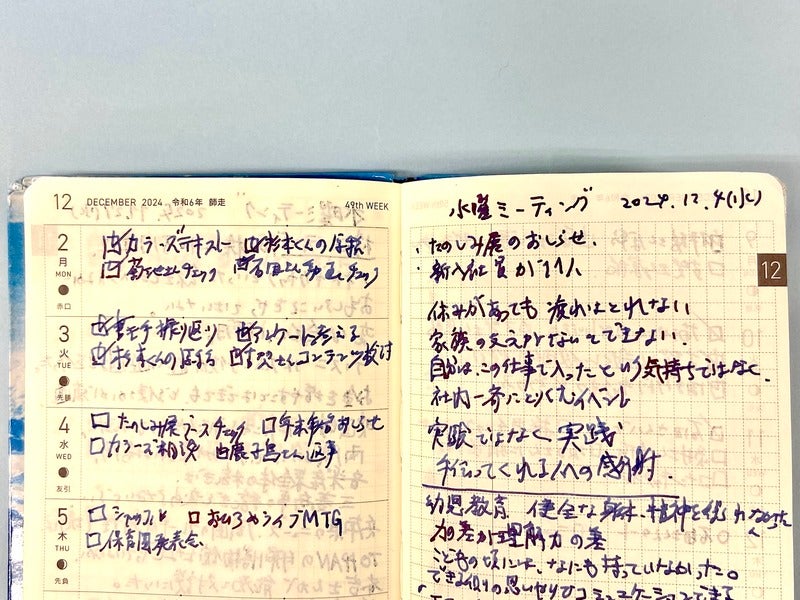 12 DECEMBER 2024 令和6年 師走 49th WEEK
2
月
MON
赤口
カラーズテキスト 杉本くんの原稿
チェック 石田さん動画チェック
3
火
TUE
先勝
振り返り アンケート考える
杉本くんの原稿 さんコンテンツ検討
4
水
WED
友引
たのしみ展ブースチェック 年末年始おしらせ
カラーズ相談 鹿子島さん返事
5
木
THU
先負
シャッフル おひろめライブMTG
保育園発表会
12
水曜ミーティング 2024.12.4(水)
・たのしみ展のおしらせ.
・新入社員が11人
休みがあっても疲れはとれない
家族の支えがないとできない.
自分は、この仕事で入ったという気持ちではなく.
社内一斉にとりくむイベント
実験ではなく実践
手伝ってくれる人への感謝.
幼児教育 健全な身体、精神を
力の差が理解力の差
こどもの頃には、なにも持っていなかった。
できる限りの思いやりでコミュニケーションできる